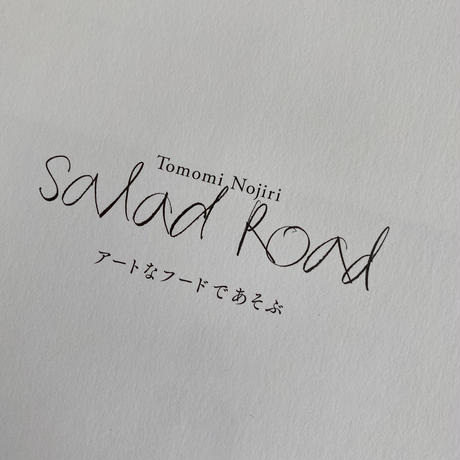 Tomomi Nojiri
Salad Road
アートなフードであそぶ